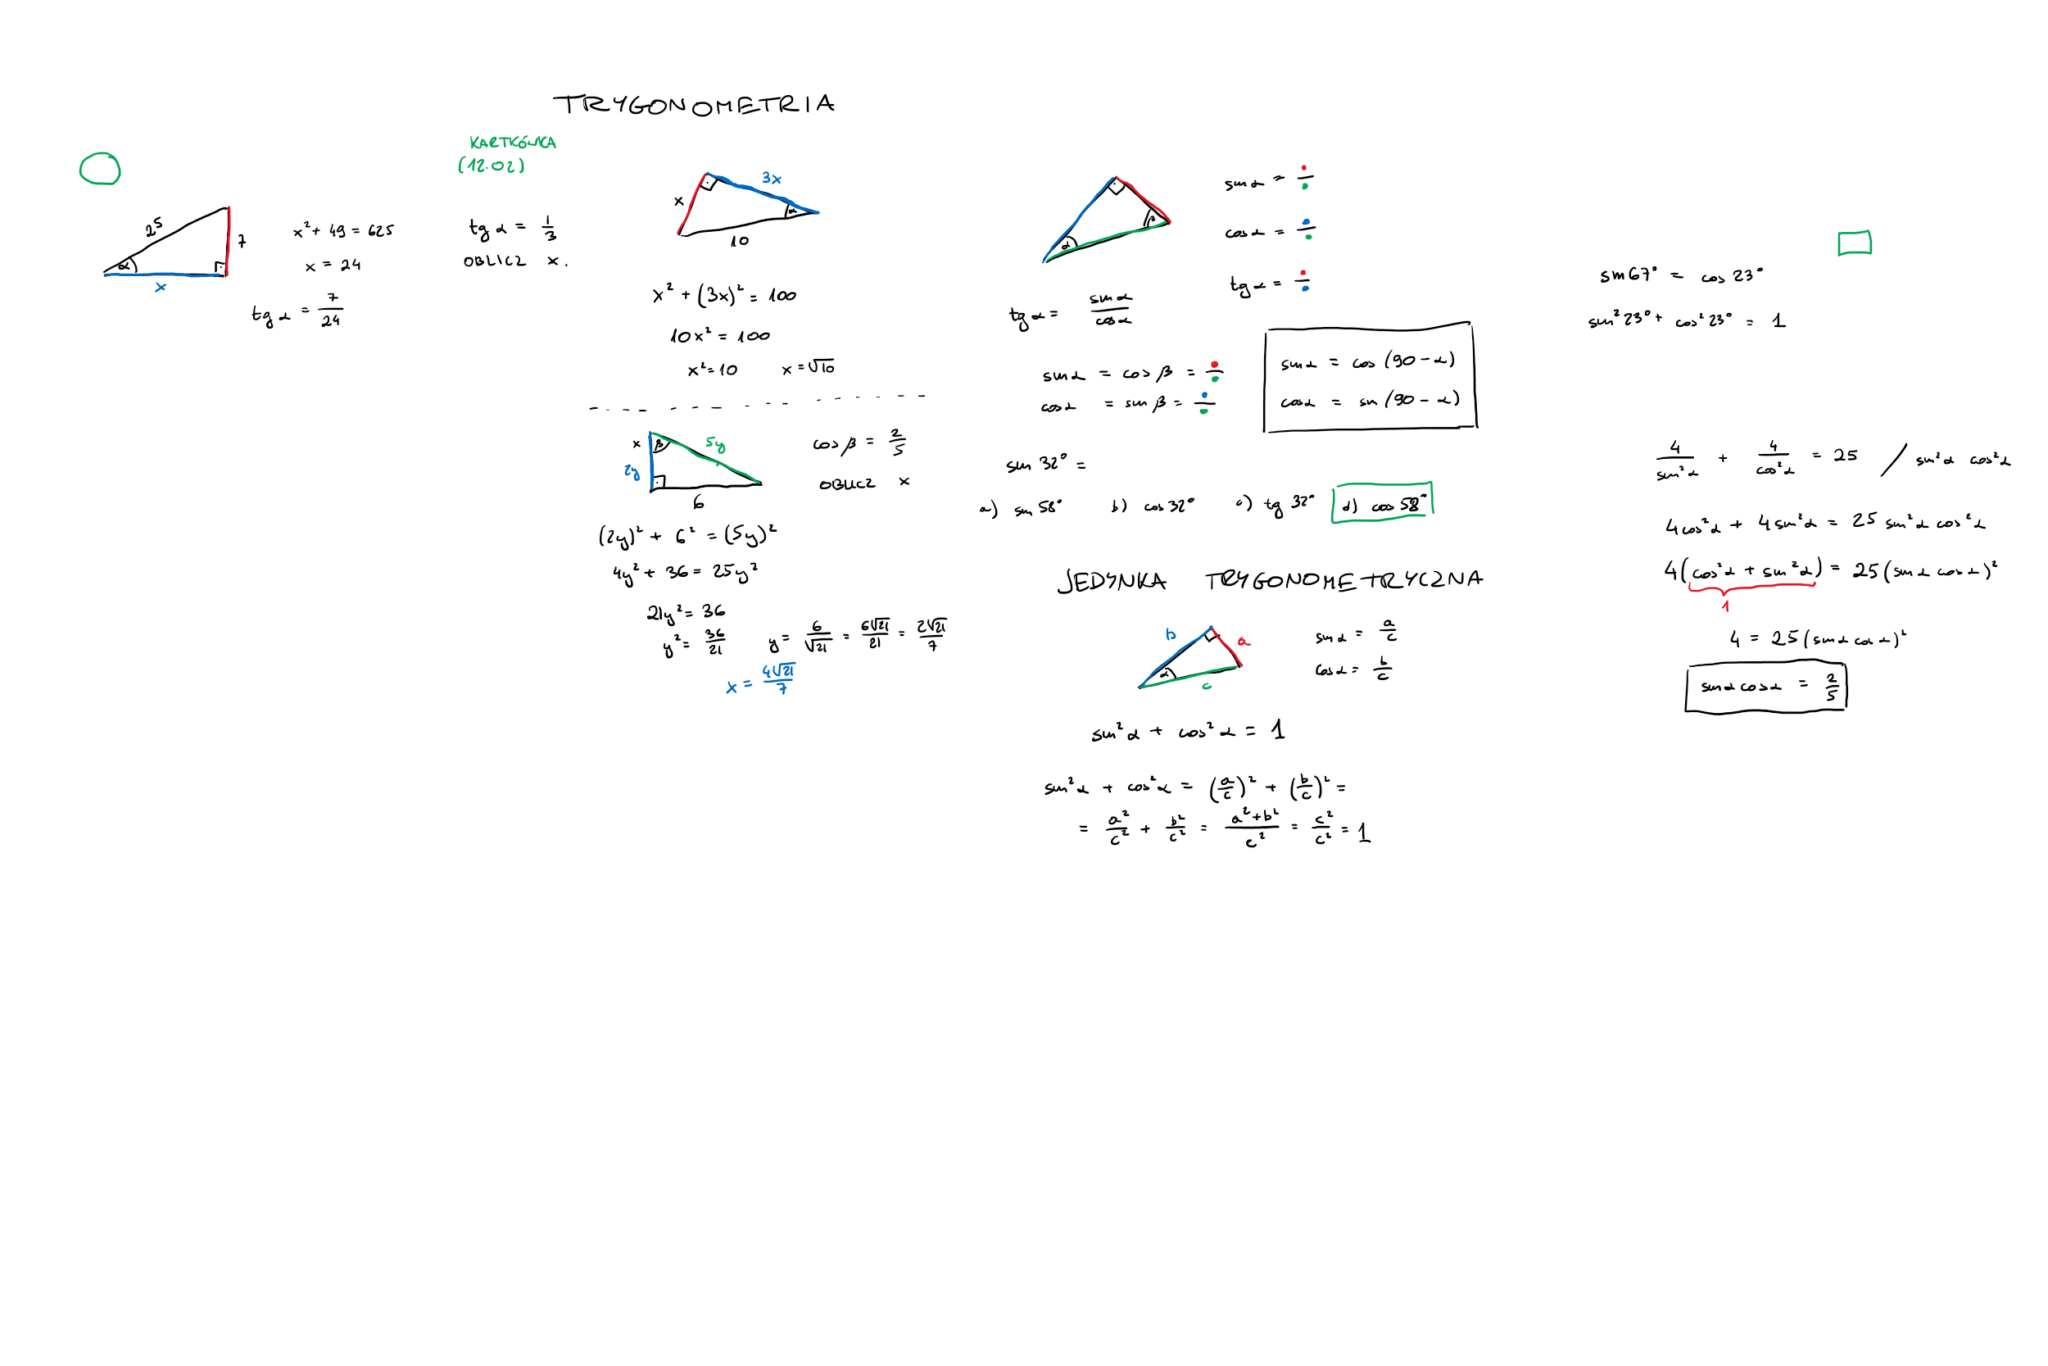 TRYGONOMETRIA
25
7
α
x
x² + 49 = 625
x = 24
tg α = 7/24
KARTKÓWKA
(12.02)
tg α = 1/3
OBLICZ x.
x
3x
α
10
x² + (3x)² = 100
10x² = 100
x² = 10 x = √10
x
β
5y
2y
6
cos β = 2/5
OBLICZ x
(2y)² + 6² = (5y)²
4y² + 36 = 25y²
21y² = 36
y² = 36/21 y = 6/√21 = 6√21/21 = 2√21/7
x = 4√21/7
α
β
sin α = •/•
cos α = •/•
tg α = •/•
tg α = sin α/cos α
sin α = cos β = •/•
cos α = sin β = •/•
sin α = cos (90 - α)
cos α = sin (90 - α)
sin 32° =
a) sin 58° b) cos 32° c) tg 32° d) cos 58°
JEDYNKA TRYGONOMETRYCZNA
b
a
α
c
sin α = a/c
cos α = b/c
sin² α + cos² α = 1
sin² α + cos² α = (a/c)² + (b/c)² =
= a²/c² + b²/c² = a²+b²/c² = c²/c² = 1
sin 67° = cos 23°
sin² 23° + cos² 23° = 1
4/sin² α + 4/cos² α = 25 / sin² α cos² α
4 cos² α + 4 sin² α = 25 sin² α cos² α
4 (cos² α + sin² α) = 25 (sin α cos α)²
1
4 = 25 (sin α cos α)²
sin α cos α = 2/5